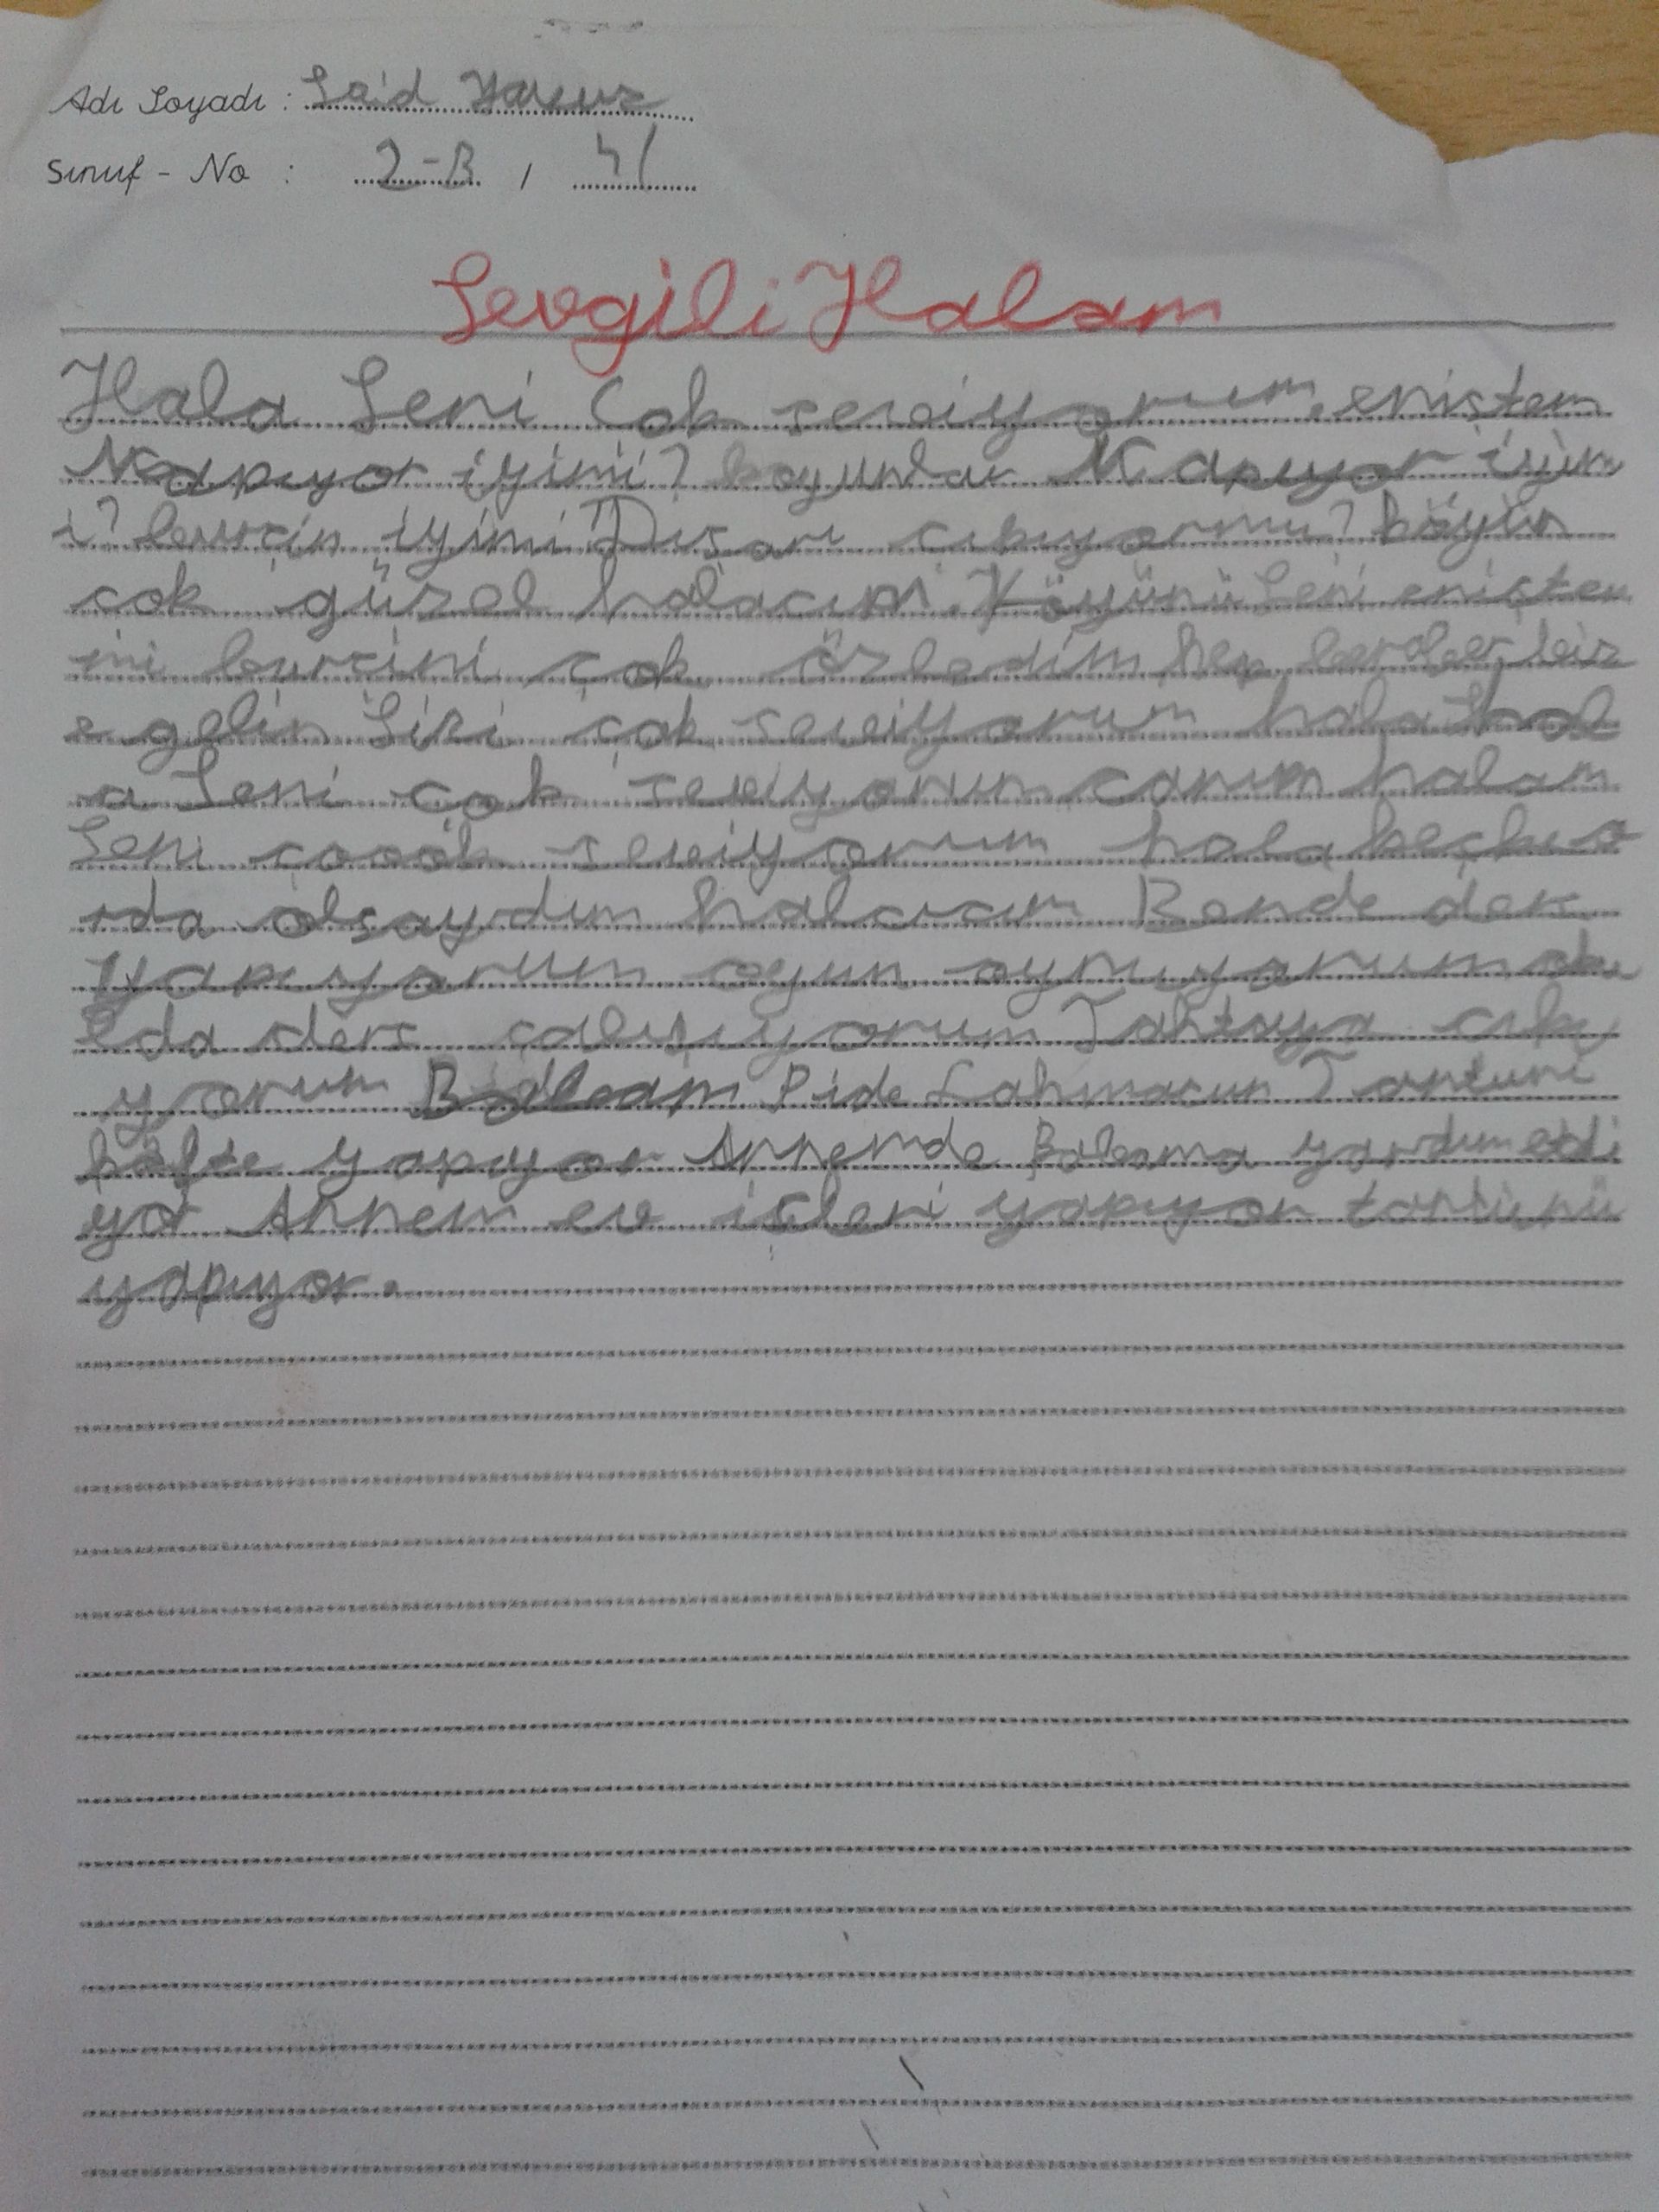 Adı Soyadı : Said Yavuz
Sınıf - No : 2-B / 41
Sevgili Halam
Hala Seni Çok seviyorum. eniştem
Napıyor iyimi? koyunlar Napıyor iyim
i? burçin iyimi? Dışarı cıkıyormu? köyün
cok güzel halacım. Köyünü Seni enişte
mi burcini çok özledim hep beraber biz
e gelin Sizi çok seviyorum hala hal
a Seni çok seviyorum canım halam
Seni çooök seviyorum hala keşke o
rda olsaydım halacım Bende ders
yapıyorum oyun oynuyorum oku
lda ders çalışıyorum Tahtaya cıkı
yorum Babam Pide Lahmacun Tantuni
köfte yapıyor Annemde Babama yardım edi
yor Annem ev işleri yapıyor
yapıyor.